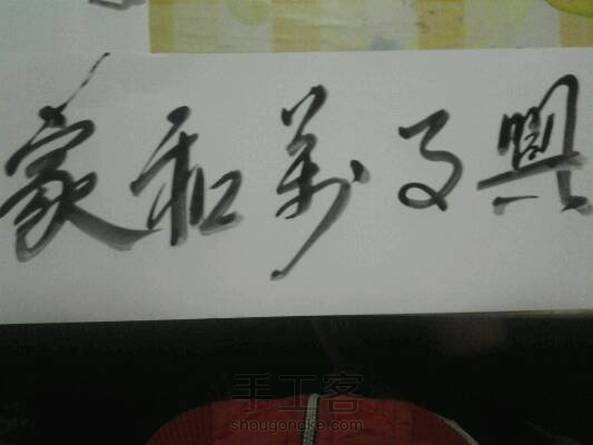 家和萬事興
手工客
shougongke.com